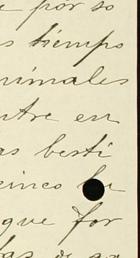 por so
tiempo
nimales
ntre en
as besti
cinco
que for